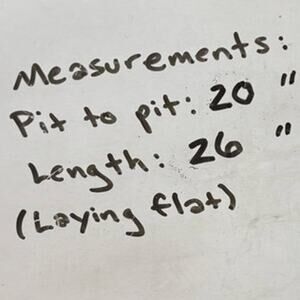 Measurements:
Pit to pit: 20 "
Length: 26 "
(Laying flat)